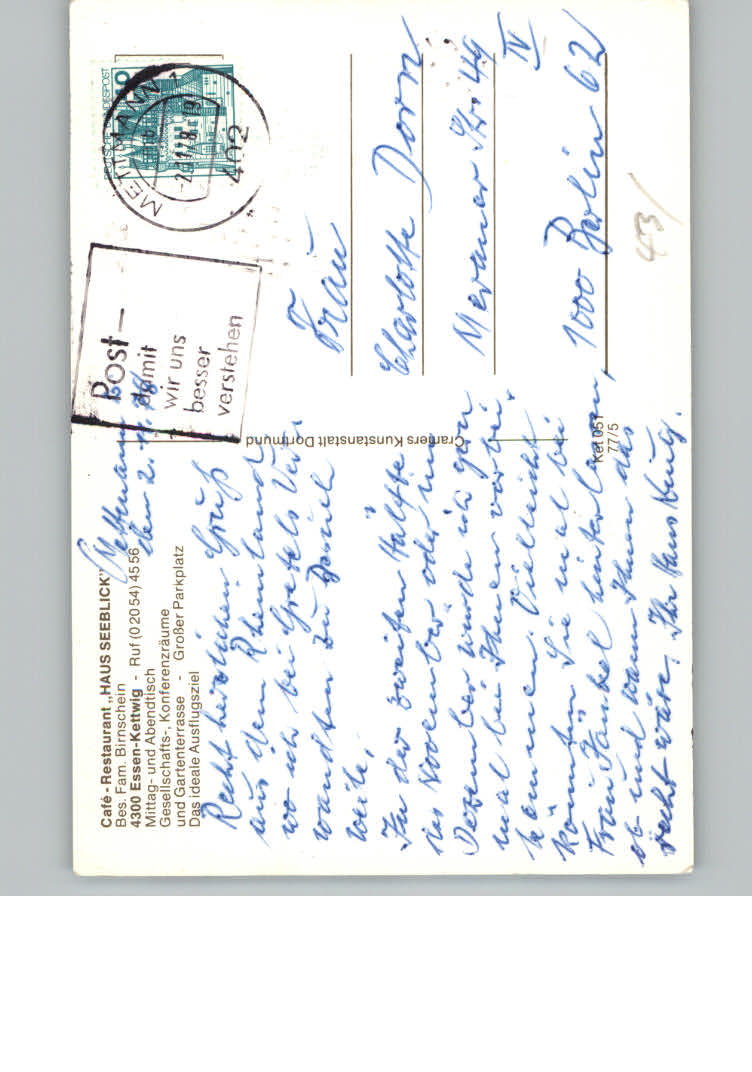 Café - Restaurant „HAUS SEEBLICK"
Bes. Fam. Birnschein
4300 Essen-Kettwig - Ruf (02054) 4556
Mittag- und Abendtisch
Gesellschafts-, Konferenzräume
und Gartenterrasse - Großer Parkplatz
Das ideale Ausflugsziel
Mettmann
den 2. 11. 78
Recht herzlichen Gruß
aus dem Rheinland
wo ich bei Gretels Ver-
wandten zu Besuch
weile.
In der zweiten Hälfte
des November oder im
Dezember würde ich gern
mal bei Ihnen vorbei
kommen. Vielleicht
könnten Sie mal bei
Frau hinterlassen,
ob und wann Ihnen das
recht wäre, Ihr
Cramers Kunstanstalt Dortmund
Ket 051
77/5
DEUTSCHE BUNDESPOST
METTMANN 1
-2.11.78
402
Post -
damit
wir uns
besser
verstehen
Frau
Charlotte Dorn
Meraner Str. 49
IV
1000 Berlin 62
43/